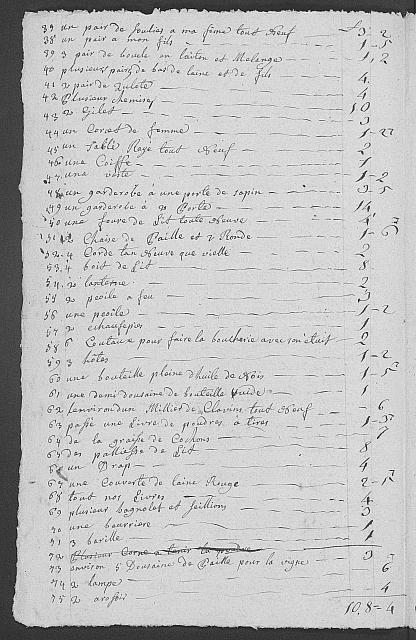 39 un pair de soulies a ma feme tout neuf — 3 - 2
38 un pair a mon fils — 1 - 5
39 3 pair de boucle en laiton et melange — 1, 2
40 plusieurs pairs de bas de laine et de fils — 4
41 2 pair de culote — 4
42 Plusieur chemises — 10
43 2 Gilet — 3
44 un Corset de femme — 1 - 2
45 un Sable Raye tout Neuf — 2
46 une Coiffe — 1
47 une veste — 1 - 2
48 un garderobe à une porte de sapin — 3 - 5
49 un garderobe à 2 Porte — 14
50 une foure de Lit toute neuve
51 2 Chaise de Paille et 2 Ronde — 1 - 6
52 4 Corde tan Neuve que vielle — 2
53 4 boit de Lit — 8
54 2 lanterne — 2
55 2 peoile a feu — 3
56 une peoile — 1 - 2
57 2 echaufepies — 1
58 6 Couteaux pour faire la boucherie avec son etuit — 2
59 3 hôtes — 1 - 2
60 une bouteille pleine d'huile de Nois — 1 - 5
61 une demi dousaine de bouteille vuide — 1
62 lenviron d'un Millier de Clavins tout Neuf — 6
63 passé une Livre de poudres à tirer — 1 - 3
64 de la graisse de Cochons — 7
65 des palliesse de Lit — 8
66 un Drap — 4
67 une Couverte de laine Rouge — 2 - 5
68 tout nos Livres — 4
69 plusieur bagnolet et seillions — 3
70 une beurriere — 1
71 3 barille — 1
72 Plusieur Corne a tenir la poudre — 3
73 environ 5 Dousaine de Paille pour la vigne — 6
74 2 lampe — 4
75 2 arosoir
10,8 - 4